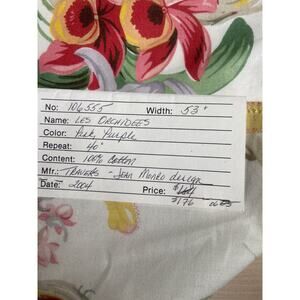 No: 106555 Width: 53"
Name: LES ORCHIDEES
Color: Pink, Purple
Repeat: 40"
Content: 100% Cotton
Mfr.: Travers - Jean Monro design
Date: 2004 Price: $164
$176